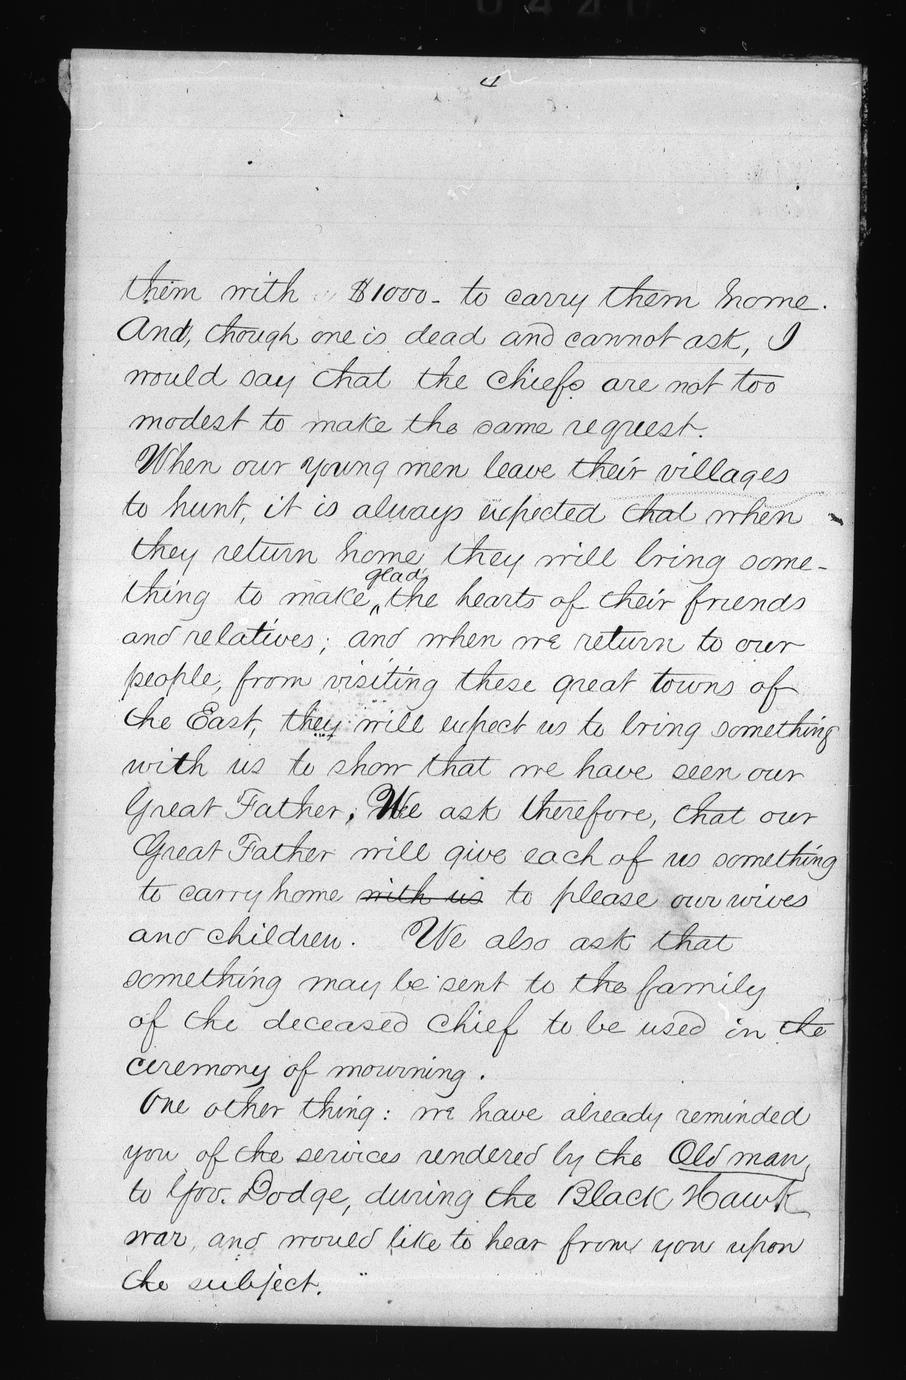 4
them with $1000- to carry them home.
And, though one is dead and cannot ask, I
would say that the chiefs are not too
modest to make the same request.
When our young men leave their villages
to hunt, it is always expected that when
they return home, they will bring some-
glad
thing to make ^ the hearts of their friends
and relatives; and when we return to our
people, from visiting these great towns of
the East, they will expect us to bring something
with us to show that we have seen our
Great Father. We ask therefore, that our
Great Father will give each of us something
to carry home with us to please our wives
and children. We also ask that
something may be sent to the family
of the deceased chief to be used in the
ceremony of mourning.
One other thing: we have already reminded
you of the services rendered by the Old man,
to Gov. Dodge, during the Black Hawk
war, and would like to hear from you upon
the subject."